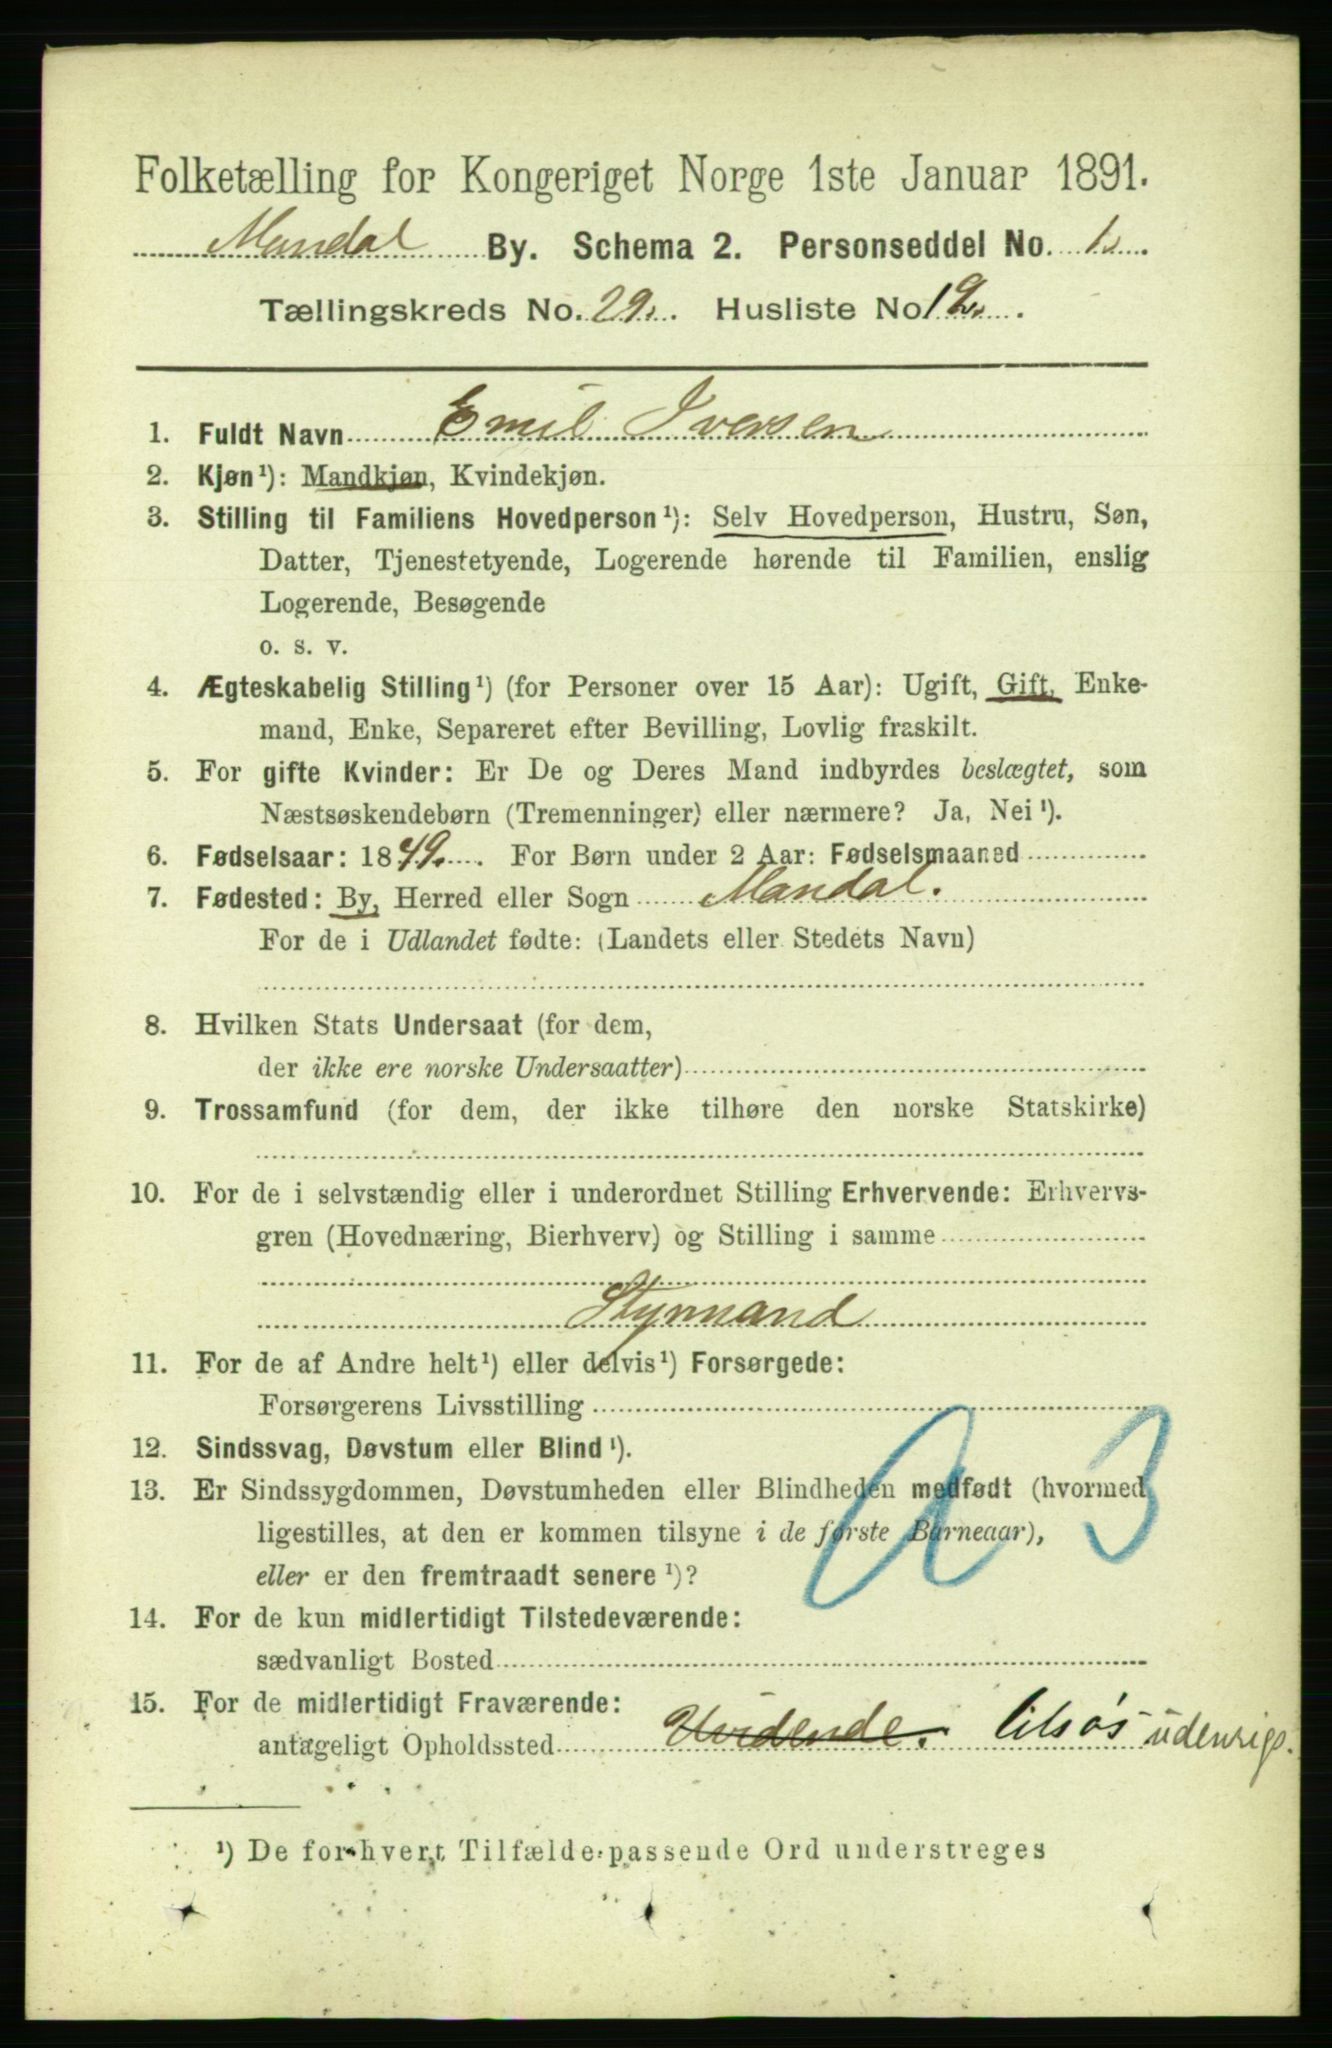 Folketælling for Kongeriget Norge 1ste Januar 1891.
Mandal By. Schema 2. Personseddel No. 1.
Tællingskreds No. 29. Husliste No 12.
1. Fuldt Navn Emil Iversen
2. Kjøn¹): Mandkjøn, Kvindekjøn.
3. Stilling til Familiens Hovedperson¹): Selv Hovedperson, Hustru, Søn,
Datter, Tjenestetyende, Logerende hørende til Familien, enslig
Logerende, Besøgende
o. s. v.
4. Ægteskabelig Stilling¹) (for Personer over 15 Aar): Ugift, Gift, Enke-
mand, Enke, Separeret efter Bevilling, Lovlig fraskilt.
5. For gifte Kvinder: Er De og Deres Mand indbyrdes beslægtet, som
Næstsøskendebørn (Tremenninger) eller nærmere? Ja, Nei¹).
6. Fødselsaar: 1849. For Børn under 2 Aar: Fødselsmaaned
7. Fødested: By, Herred eller Sogn Mandal.
For de i Udlandet fødte: (Landets eller Stedets Navn)
8. Hvilken Stats Undersaat (for dem,
der ikke ere norske Undersaatter)
9. Trossamfund (for dem, der ikke tilhøre den norske Statskirke)
10. For de i selvstændig eller i underordnet Stilling Erhvervende: Erhvervs-
gren (Hovednæring, Bierhverv) og Stilling i samme
Styrmand
11. For de af Andre helt¹) eller delvis¹) Forsørgede:
Forsørgerens Livsstilling
12. Sindssvag, Døvstum eller Blind¹).
13. Er Sindssygdommen, Døvstumheden eller Blindheden medfødt (hvormed
ligestilles, at den er kommen tilsyne i de første Barneaar),
eller er den fremtraadt senere¹)?
14. For de kun midlertidigt Tilstedeværende:
sædvanligt Bosted
15. For de midlertidigt Fraværende:
antageligt Opholdssted tilsøs udenrigs.
¹) De for hvert Tilfælde passende Ord understreges